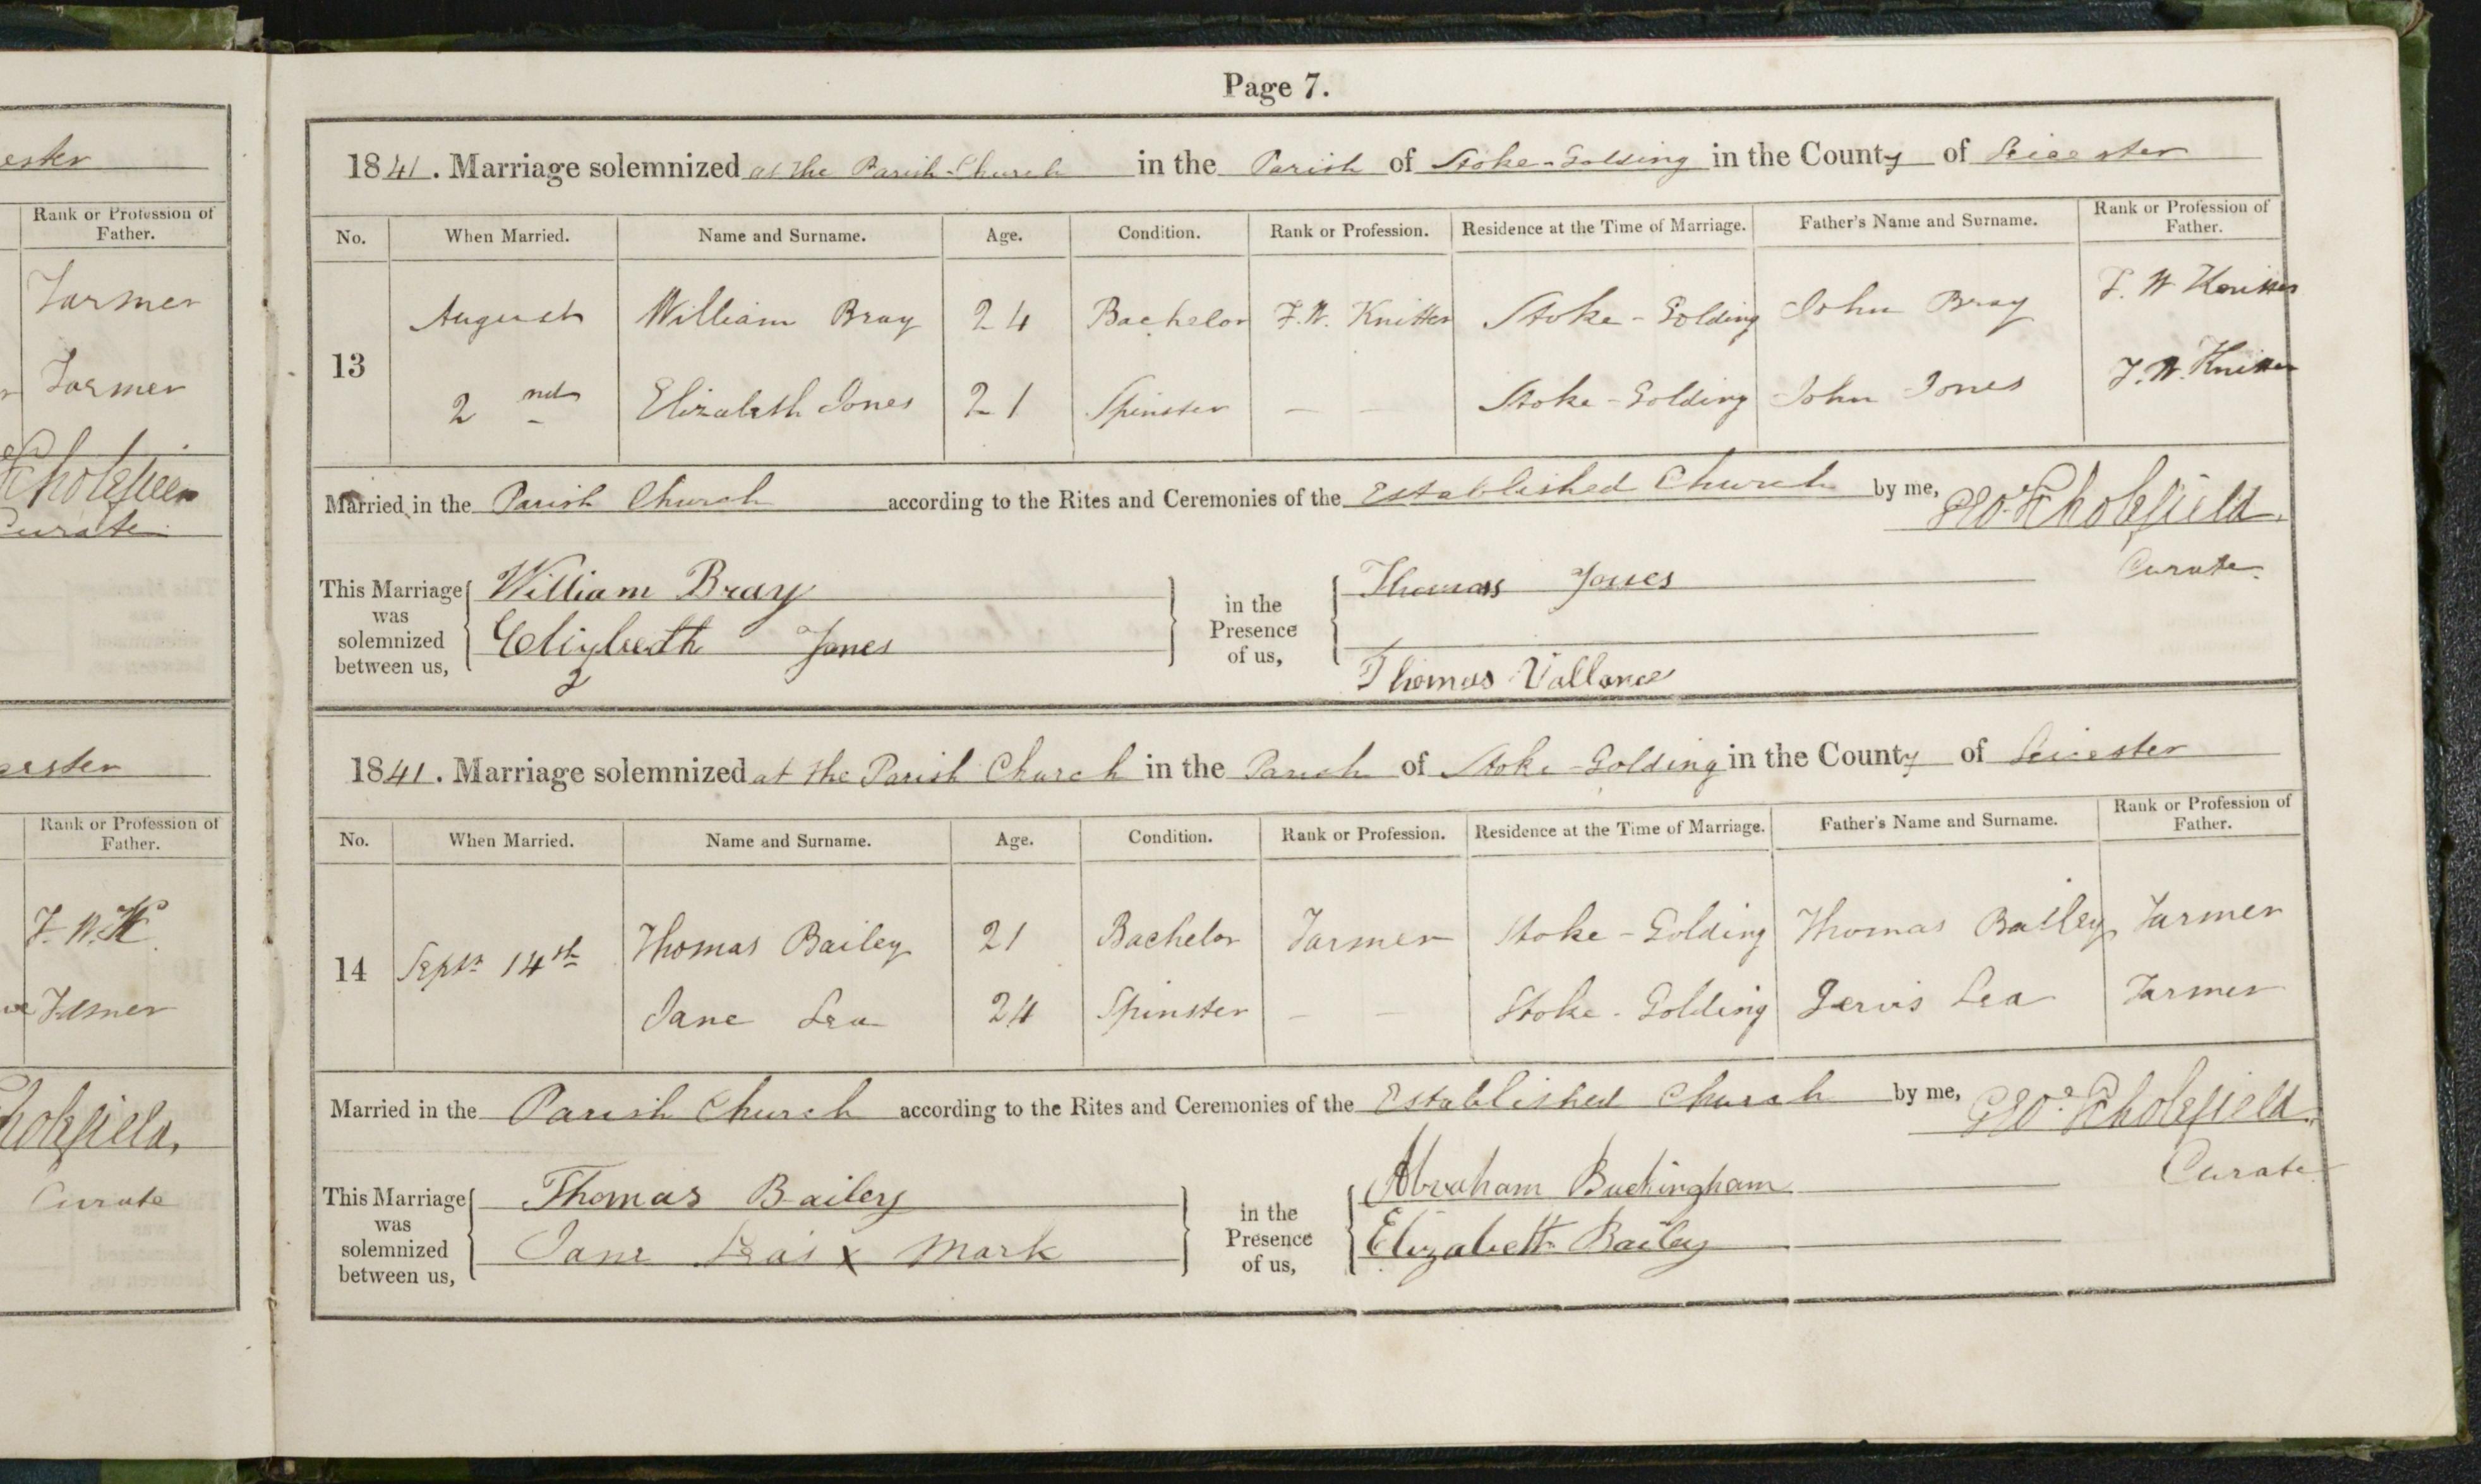 Page 7.
1841. Marriage solemnized at the Parish Church in the Parish of Stoke-Golding in the County of Leicester
No. When Married. Name and Surname. Age. Condition. Rank or Profession. Residence at the Time of Marriage. Father's Name and Surname. Rank or Profession of Father.
13 August William Bray 24 Bachelor F.W. Knitter Stoke-Golding John Bray F. W Knitter
2nd Elizabeth Jones 21 Spinster — — Stoke-Golding John Jones F.W. Knitter
Married in the Parish Church according to the Rites and Ceremonies of the Established Church by me, Geo. Scholefield.
Curate.
This Marriage was solemnized between us, William Bray in the Presence of us, Thomas Jones
Jones
Thomas Vallance
1841. Marriage solemnized at the Parish Church in the Parish of Stoke-Golding in the County of Leicester
No. When Married. Name and Surname. Age. Condition. Rank or Profession. Residence at the Time of Marriage. Father's Name and Surname. Rank or Profession of Father.
14 Septr 14th Thomas Bailey 21 Bachelor Farmer Stoke-Golding Thomas Bailey Farmer
Jane Lea 24 Spinster — — Stoke-Golding Jervis Lea Farmer
Married in the Parish Church according to the Rites and Ceremonies of the Established Church by me, Geo. Scholefield.
Curate
This Marriage was solemnized between us, Thomas Bailey in the Presence of us, Abraham Buckingham
Jane Lea's x Mark Elizabeth Bailey
ester
Rank or Profession of Father.
Farmer
Farmer
Curate
Rank or Profession of Father.
F.W.K.
Curate